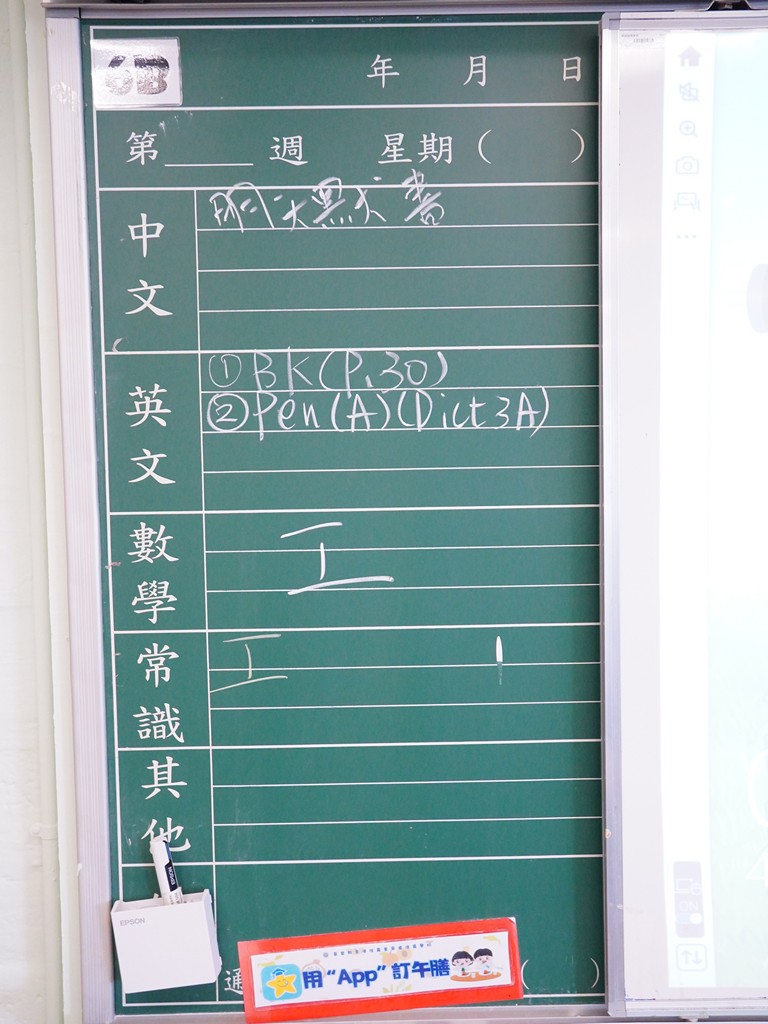 6B
年 月 日
第____週 星期( )
中文
明天默書
英文
①BK(P.30)
②Pen(A)(Dict3A)
數學
工
常識
工
其他
EPSON
EPSON
用“App”訂午膳
通
( )
ON